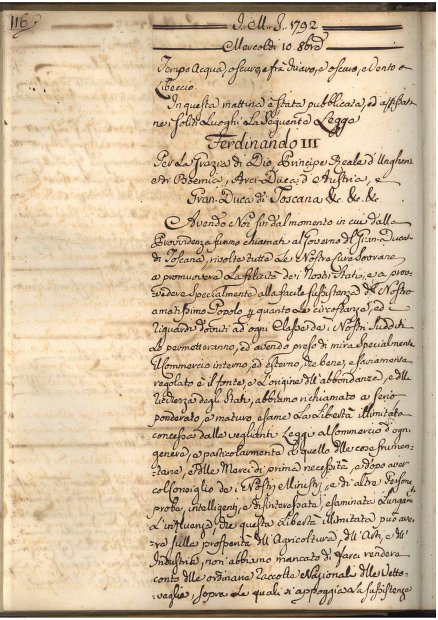 116
J. M. J. 1792
Mercoldì 10. 8bre
Tempo Acqua, oscuro, e frà chiaro, e oscuro, e Vento a
Libeccio
In questa mattina è stata pubblicata, ed affissa
ne i soliti Luoghi La Seguente Legge
Ferdinando III
Per La Grazia di Dio Principe Reale d'Ungheria
e di Boemia, Arci-Duca d'Austria,
Gran-Duca di Toscana &c. &c. &c.
Avendo Noi fin dal momento in cui dalla
Provvidenza fummo chiamati al Governo del Gran-Ducato
di Toscana, rivolte tutte Le Nostre Cure Sovrane
a promuovere La felicità de i Nostri Stati, e a prov-
vedere Specialmente alla facile Sussistenza del Nostro
amatissimo Popolo quanto Le circostanze, ed
i riguardi dovuti ad ogni Classe de i Nostri Sudditi
Lo permetteranno, ed avendo preso di mira Specialmente
il Commercio interno, ed esterno, che bene, e saviamente
regolato è il fonte, e L'origine dell'abbondanza, e della
ricchezza degli Stati, abbiamo richiamato a serio
ponderato, e maturo esame La Libertà illimitata
concessa dalle veglianti Leggi al Commercio d'ogni
genere, e particolarmente a quello delle cose frumen-
tarie, e delle Merci di prima necessità, e dopo aver
col Consiglio de i Nostri Ministri, e di altre Persone
probe, intelligenti, e disinteressate, esaminata
L'influenza che questa Libertà illimitata può ave-
re sulla prosperità dell'Agricoltura, dell'Arti, e dell'
Industria, non abbiamo mancato di farci rendere
conto delle ordinarie raccolte Nazionali delle Vetto-
vaglie, sopra Le quali si appoggia La sussistenza